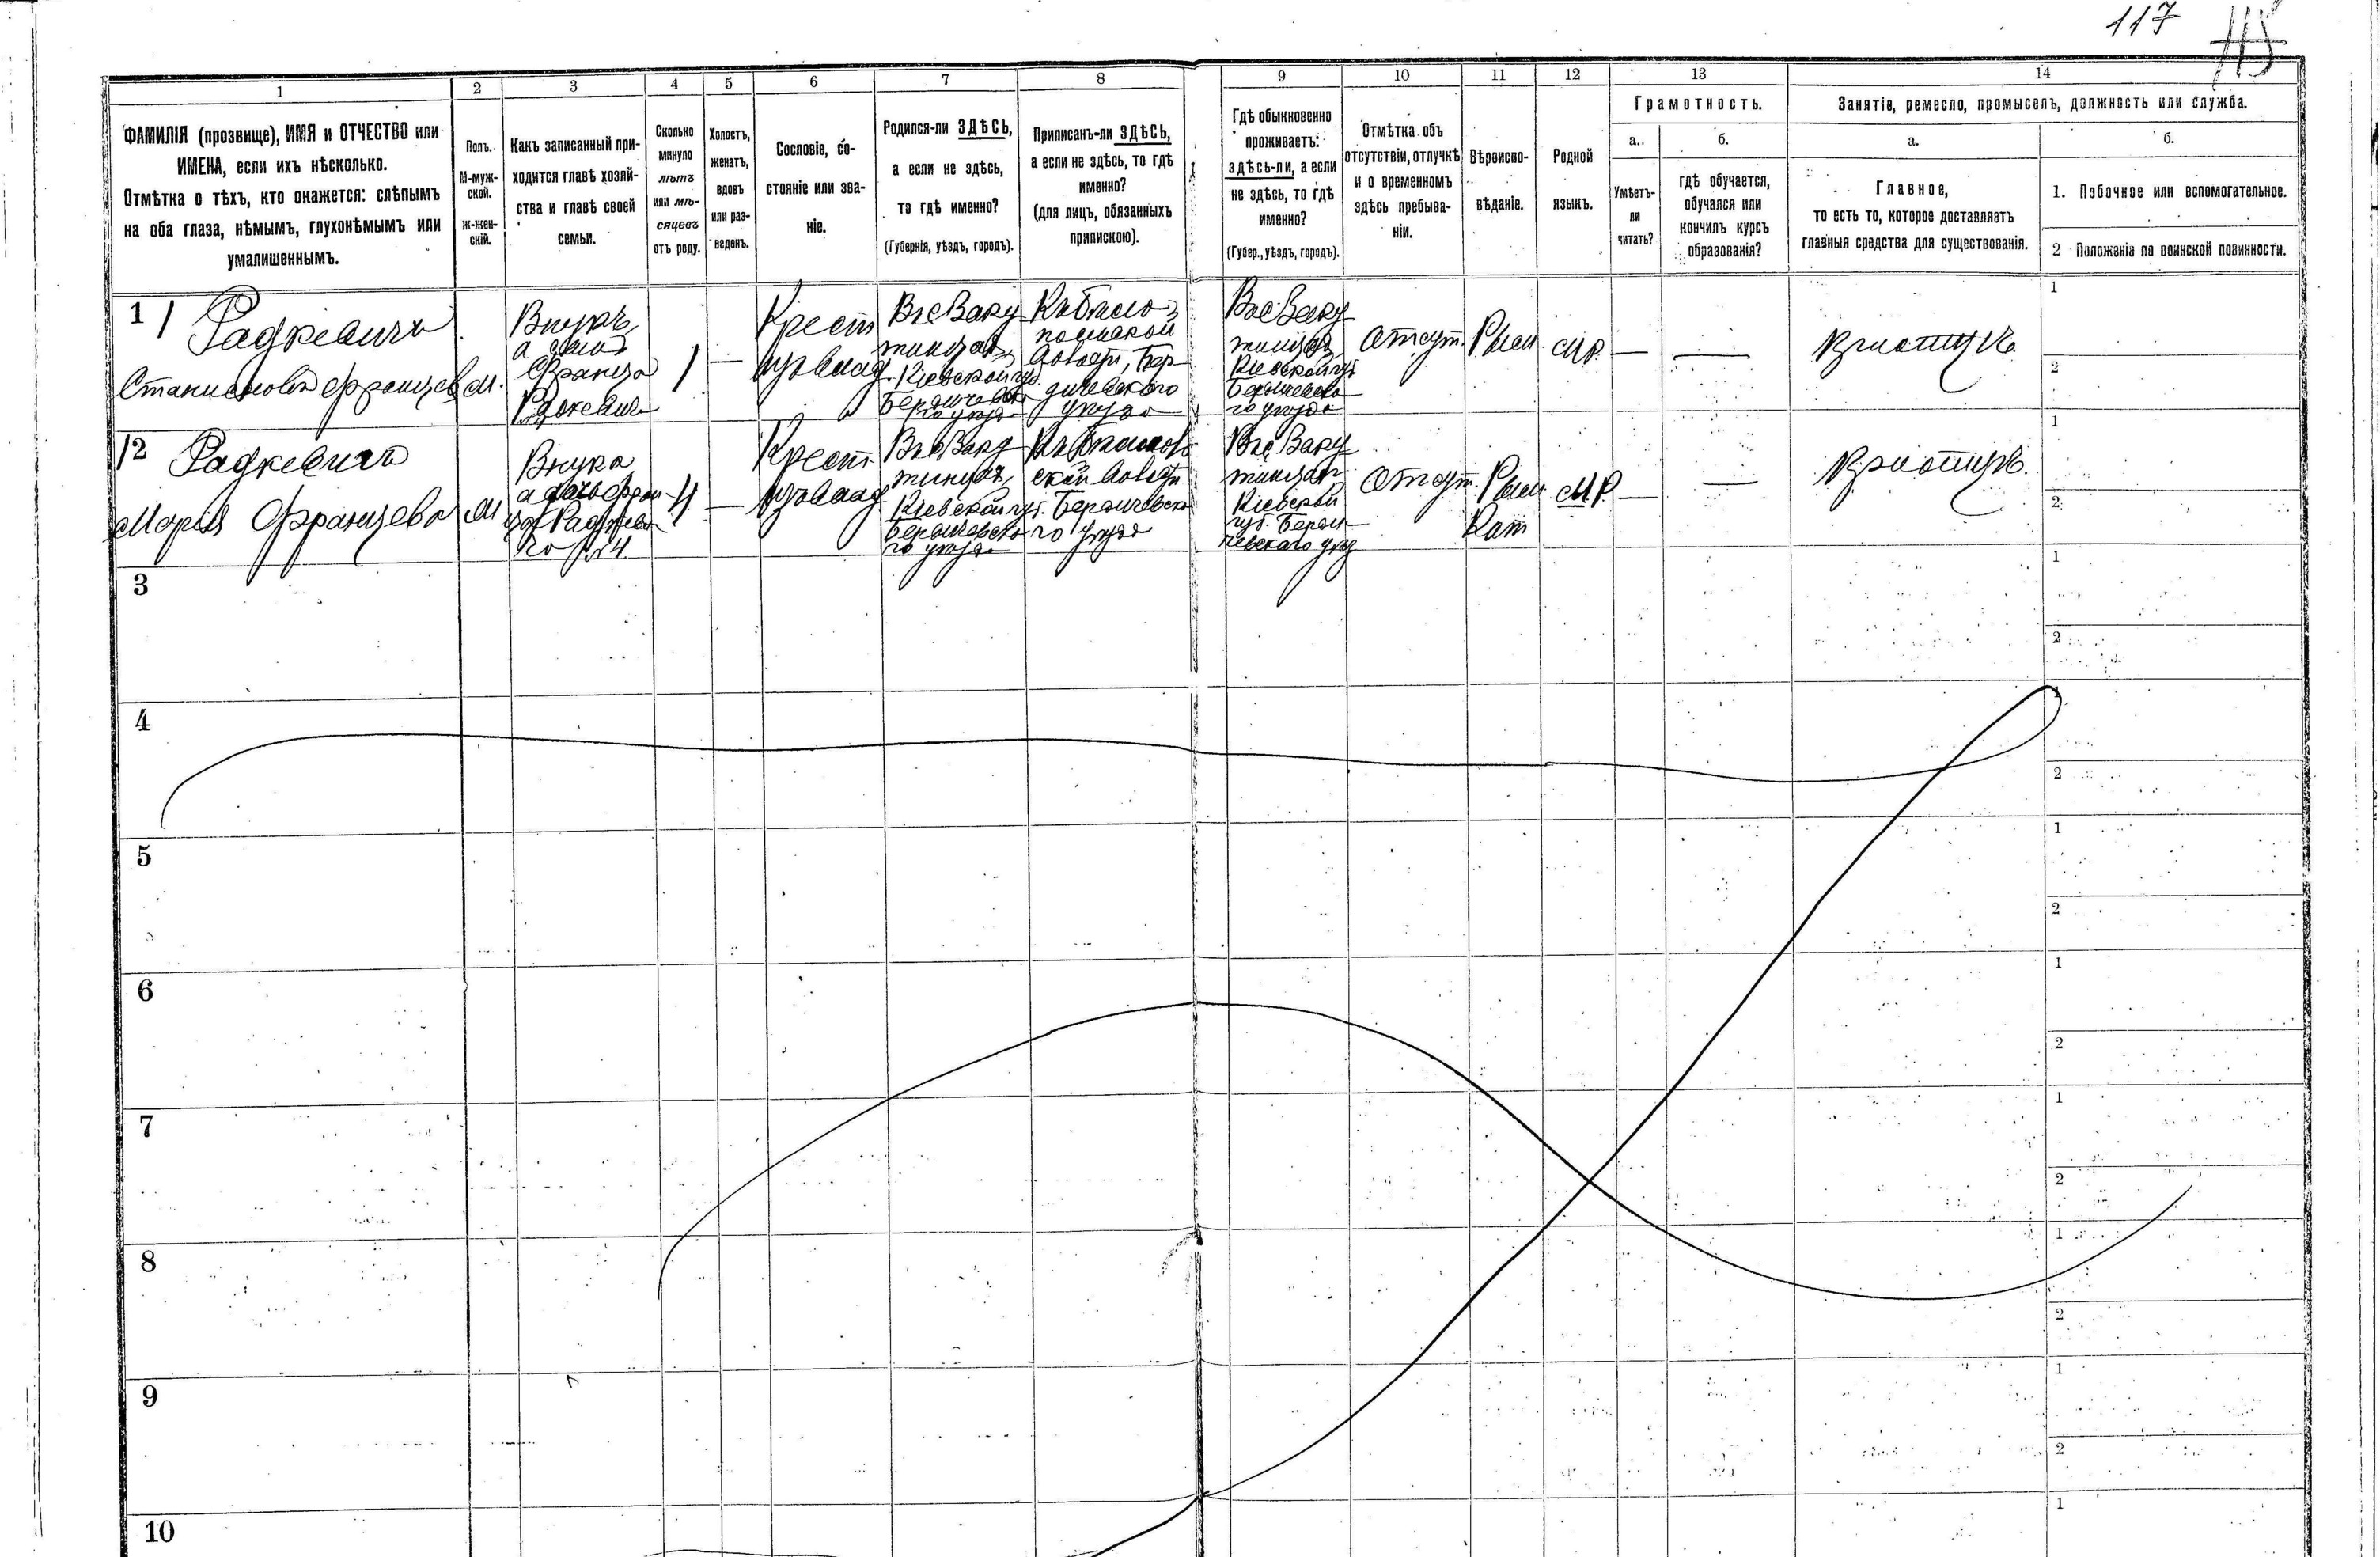 117
115
1
2
3
4
5
6
7
8
9
10
11
12
13
14
ФАМИЛІЯ (прозвище), ИМЯ и ОТЧЕСТВО или
ИМЕНА, если ихъ нѣсколько.
Отмѣтка о тѣхъ, кто окажется: слѣпымъ
на оба глаза, нѣмымъ, глухонѣмымъ или
умалишеннымъ.
Полъ.
М-муж-
ской.
ж-жен-
скій.
Какъ записанный при-
ходится главѣ хозяй-
ства и главѣ своей
семьи.
Сколько
минуло
лѣтъ
или мѣ-
сяцевъ
отъ роду.
Холостъ,
женатъ,
вдовъ
или раз-
веденъ.
Сословіе, со-
стояніе или зва-
ніе.
Родился-ли ЗДѢСЬ,
а если не здѣсь,
то гдѣ именно?
(Губернія, уѣздъ, городъ).
Приписанъ-ли ЗДѢСЬ,
а если не здѣсь, то гдѣ
именно?
(для лицъ, обязанныхъ
припискою).
Гдѣ обыкновенно
проживаетъ:
здѣсь-ли, а если
не здѣсь, то гдѣ
именно?
(Губер., уѣздъ, городъ).
Отмѣтка объ
отсутствіи, отлучкѣ
и о временномъ
здѣсь пребыва-
ніи.
Вѣроиспо-
вѣданіе.
Родной
языкъ.
Грамотность.
а.
Умѣетъ-
ли
читать?
б.
гдѣ обучается,
обучался или
кончилъ курсъ
образованія?
Занятіе, ремесло, промыселъ, должность или служба.
а.
Главное,
то есть то, которое доставляетъ
главныя средства для существованія.
б.
1. Побочное или вспомогательное.
2 Положеніе по воинской повинности.
1
Радкевичъ
Станиславъ Францевъ
м.
Внукъ,
а сынъ
Франца
Радкевича
1
—
Крест
изъ влад.
Кіевской губ.
Бердичевска
го уѣзда
волости, Бер-
дичевского
уѣзда
Кіевской губ
Бердичевска
го уѣзда
Отсут.
Рим
М.Р.
—
—
1
2
2
Радкевичъ
Марія Францева
М
Внука
а дочь Фран-
ца Радкеви
4
—
Крест
изъ влад
Кіевской губ.
Бердичевско
го уѣзда
ской волости
Бердичевско
го уѣзда
Кіевской
губ. Берди-
чевскаго уѣзд
Отсут.
Рим
Кат
М.Р
—
—
1
2
3
1
2
4
1
2
5
1
2
6
1
2
7
1
2
8
1
2
9
1
2
10
1